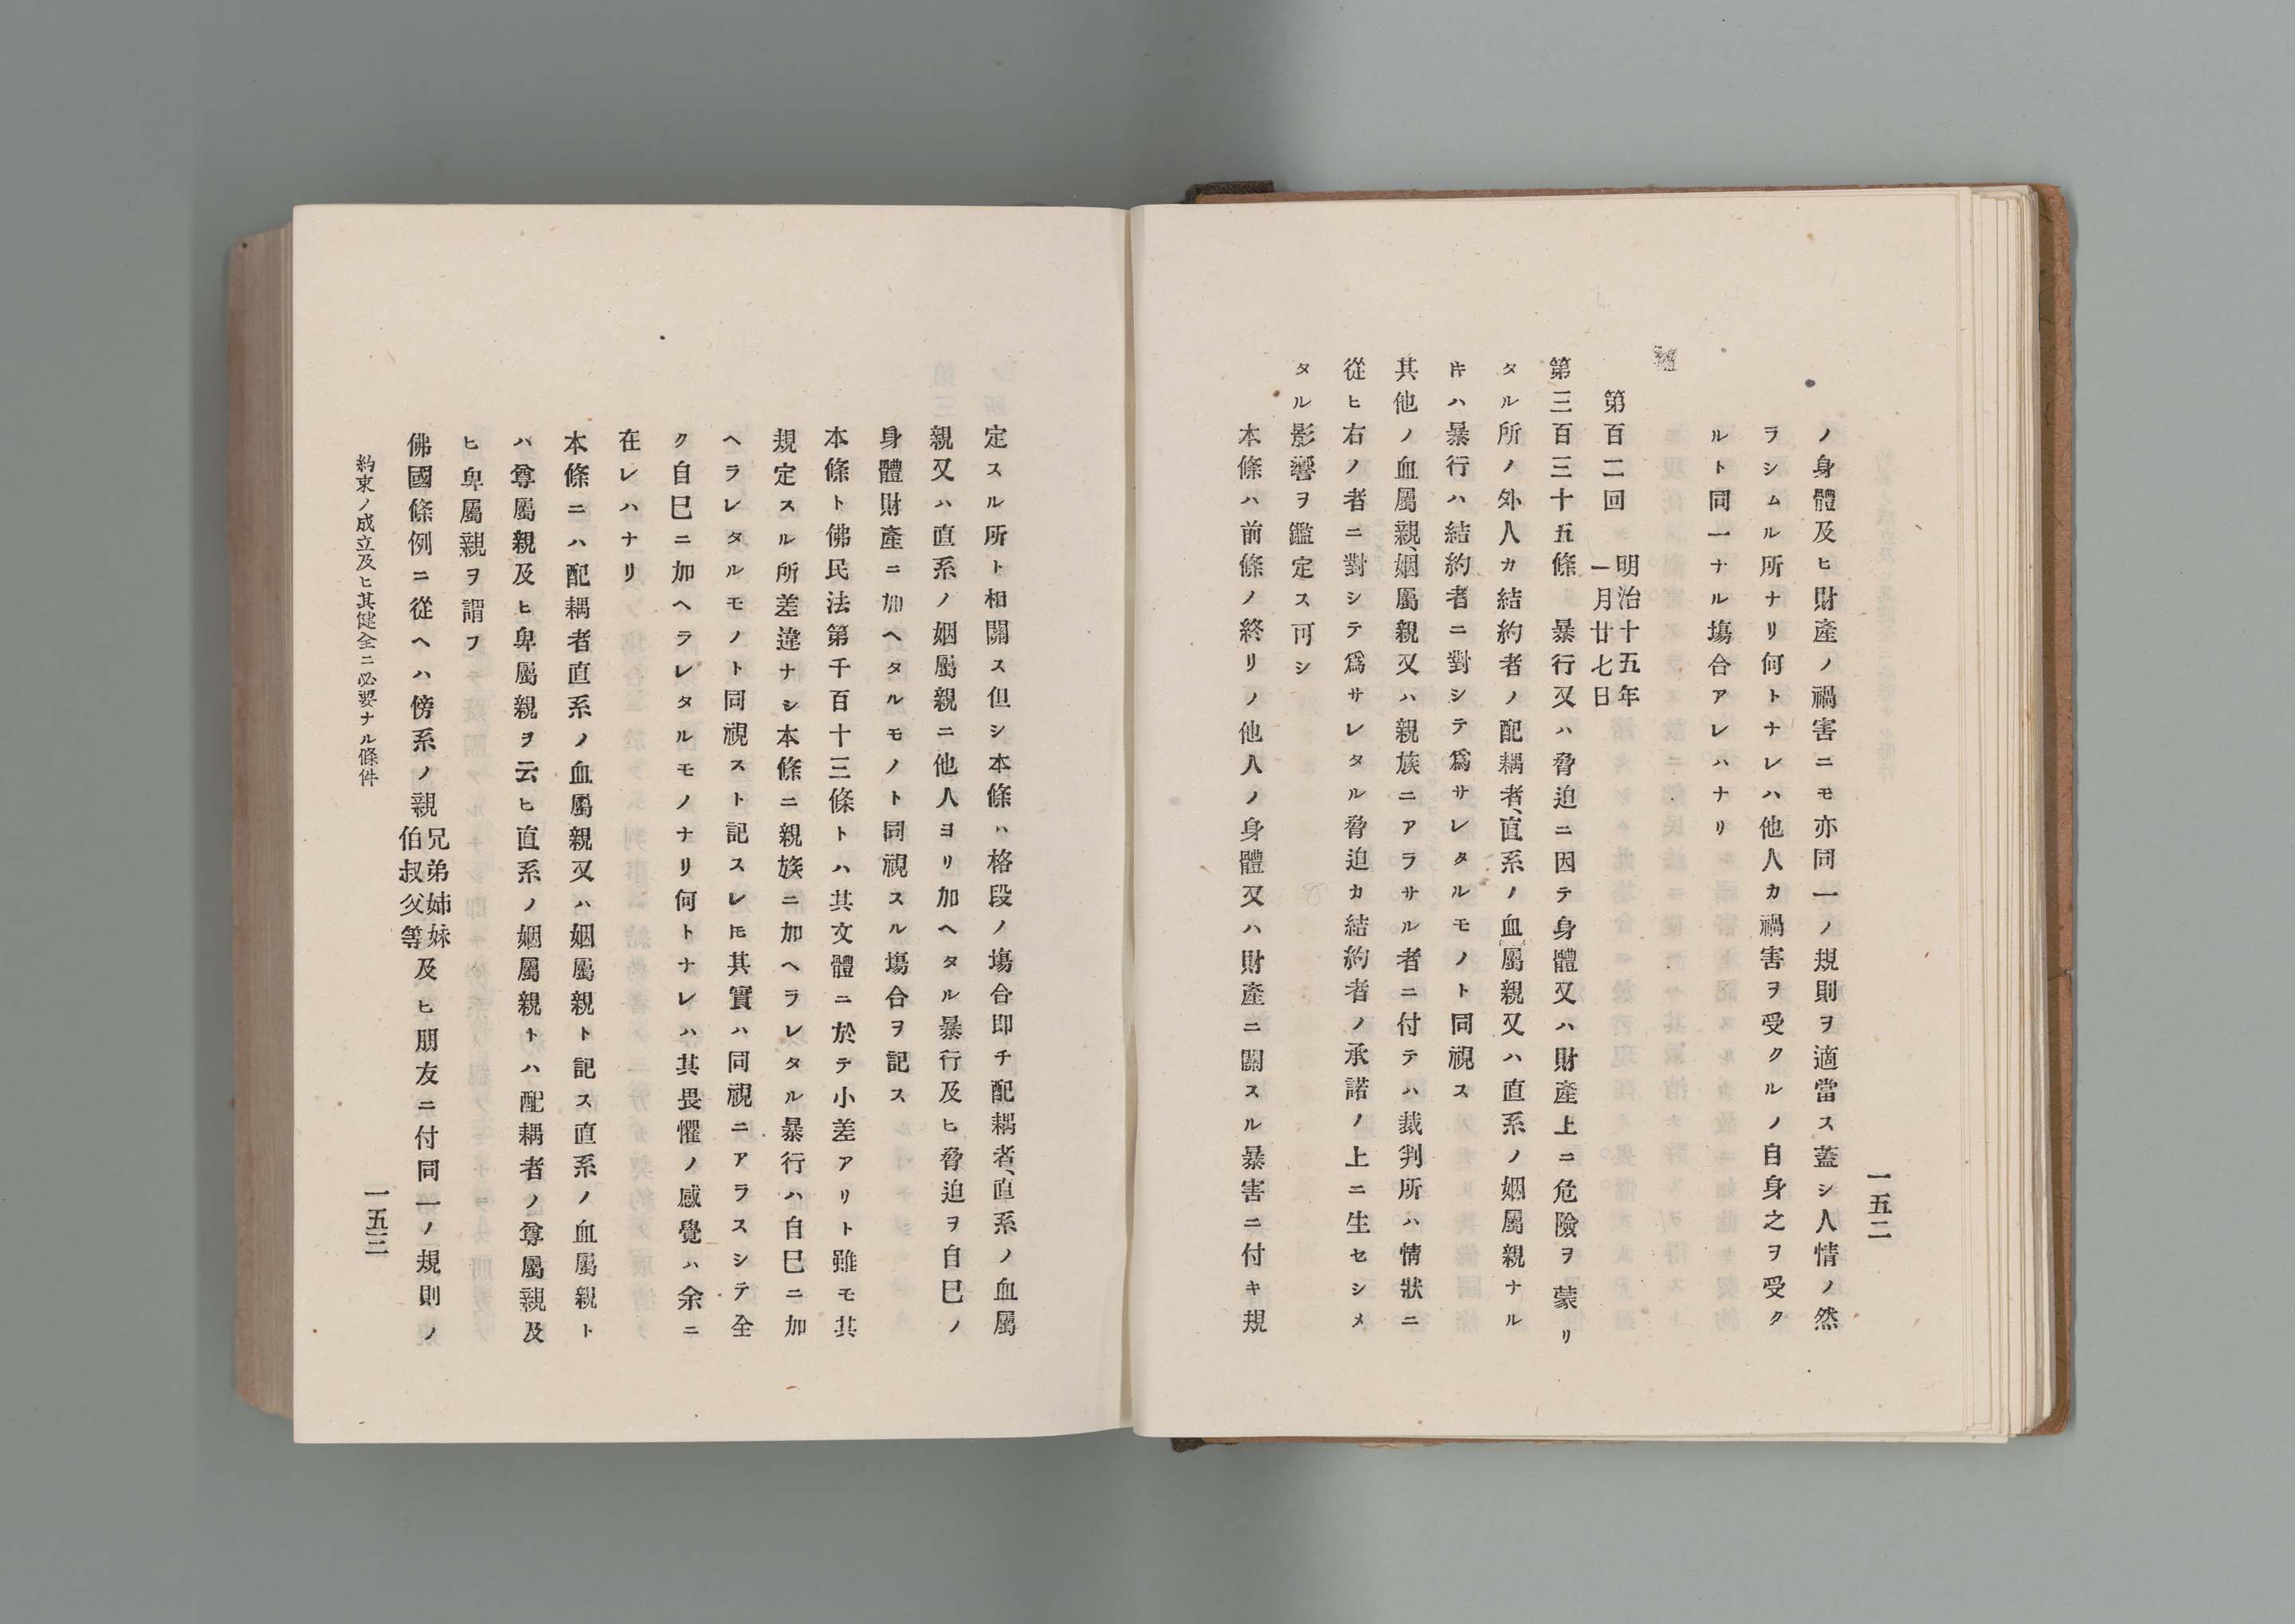 一五二
ノ身體及ヒ財產ノ禍害ニモ亦同一ノ規則ヲ適當ス蓋シ人情ノ然
ラシムル所ナリ何トナレハ他人カ禍害ヲ受クルノ自身之ヲ受ク
ルト同一ナル塲合アレハナリ
第百二回 明治十五年
一月廿七日
第三百三十五條 暴行又ハ脅迫ニ因テ身體又ハ財產上ニ危險ヲ蒙リ
タル所ノ外人カ結約者ノ配耦者、直系ノ血屬親又ハ直系ノ姻屬親ナル
𪜈ハ暴行ハ結約者ニ對シテ爲サレタルモノト同視ス
其他ノ血屬親、姻屬親又ハ親族ニアラサル者ニ付テハ裁判所ハ情狀ニ
從ヒ右ノ者ニ對シテ爲サレタル脅迫カ結約者ノ承諾ノ上ニ生セシメ
タル影響ヲ鑑定ス可シ
本條ハ前條ノ終リノ他人ノ身體又ハ財產ニ關スル暴害ニ付キ規
定スル所ト相關ス但シ本條ハ格段ノ塲合即チ配耦者、直系ノ血屬
親又ハ直系ノ姻屬親ニ他人ヨリ加ヘタル暴行及ヒ脅迫ヲ自已ノ
身體財產ニ加ヘタルモノト同視スル塲合ヲ記ス
本條ト佛民法第千百十三條トハ其文體ニ於テ小差アリト雖モ其
規定スル所差違ナシ本條ニ親族ニ加ヘラレタル暴行ハ自已ニ加
ヘラレタルモノト同視スト記スレ𪜈其實ハ同視ニアラスシテ全
ク自已ニ加ヘラレタルモノナリ何トナレハ其畏懼ノ感覺ハ余ニ
在レハナリ
本條ニハ配耦者直系ノ血屬親又ハ姻屬親ト記ス直系ノ血屬親ト
ハ尊屬親及ヒ卑屬親ヲ云ヒ直系ノ姻屬親トハ配耦者ノ尊屬親及
ヒ卑屬親ヲ謂フ
佛國條例ニ從ヘハ傍系ノ親兄弟姉妹伯叔父等及ヒ朋友ニ付同一ノ規則ノ
約束ノ成立及ヒ其健全ニ必要ナル條件
一五三